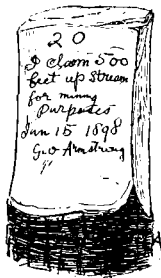 20
I claim 500
feet up Stream
for mining
Purposes
Jan 15 1898
Geo Armstrong